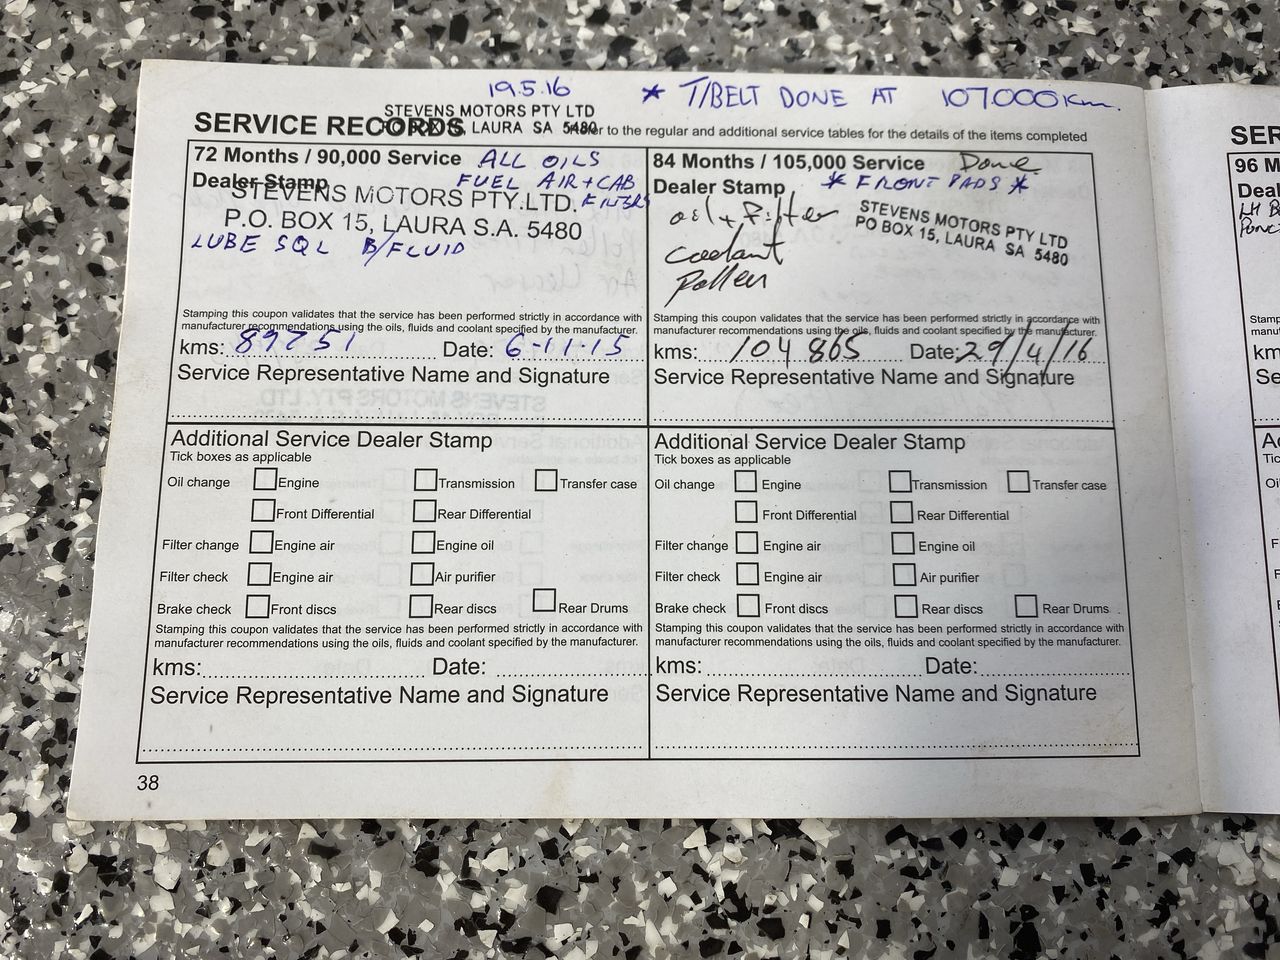 19.5.16 * T/BELT DONE AT 107000 Km.
STEVENS MOTORS PTY LTD
PO BOX 15, LAURA SA 5480
SERVICE RECORDS Refer to the regular and additional service tables for the details of the items completed
72 Months / 90,000 Service ALL OILS
Dealer Stamp FUEL AIR + CAB
STEVENS MOTORS PTY.LTD. FILTERS
P.O. BOX 15, LAURA S.A. 5480
LUBE SQL B/FLUID
Stamping this coupon validates that the service has been performed strictly in accordance with
manufacturer recommendations using the oils, fluids and coolant specified by the manufacturer.
kms: 89751 Date: 6-11-15
Service Representative Name and Signature
84 Months / 105,000 Service Done
Dealer Stamp * FRONT PADS *
oil + Filter
STEVENS MOTORS PTY LTD
PO BOX 15, LAURA SA 5480
Coolant
Pollen
Stamping this coupon validates that the service has been performed strictly in accordance with
manufacturer recommendations using the oils, fluids and coolant specified by the manufacturer.
kms: 104 865 Date: 29/4/16
Service Representative Name and Signature
Additional Service Dealer Stamp
Tick boxes as applicable
Oil change Engine Transmission Transfer case
Front Differential Rear Differential
Filter change Engine air Engine oil
Filter check Engine air Air purifier
Brake check Front discs Rear discs Rear Drums
Stamping this coupon validates that the service has been performed strictly in accordance with
manufacturer recommendations using the oils, fluids and coolant specified by the manufacturer.
kms: Date:
Service Representative Name and Signature
Additional Service Dealer Stamp
Tick boxes as applicable
Oil change Engine Transmission Transfer case
Front Differential Rear Differential
Filter change Engine air Engine oil
Filter check Engine air Air purifier
Brake check Front discs Rear discs Rear Drums
Stamping this coupon validates that the service has been performed strictly in accordance with
manufacturer recommendations using the oils, fluids and coolant specified by the manufacturer.
kms: Date:
Service Representative Name and Signature
38
SER
96 M
Deal
LH B
Stamp
manu
km
Se
Ad
Tick
Oil